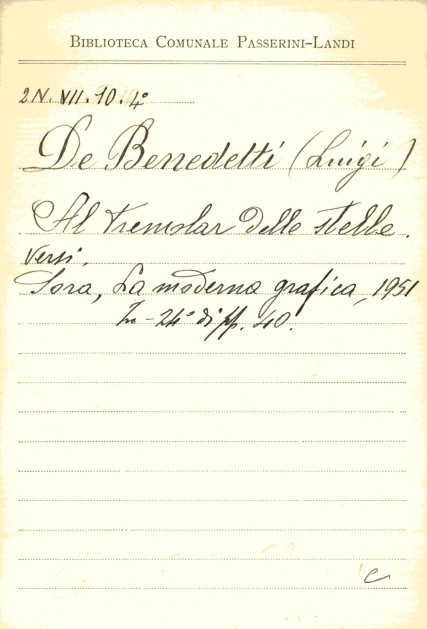 BIBLIOTECA COMUNALE PASSERINI-LANDI
2N. VII. 10. 4°
De Benedetti (Luigi)
Al tremolar delle stelle.
Versi.
Sora, La moderna grafica, 1951
In-24° di pp. 40.
C